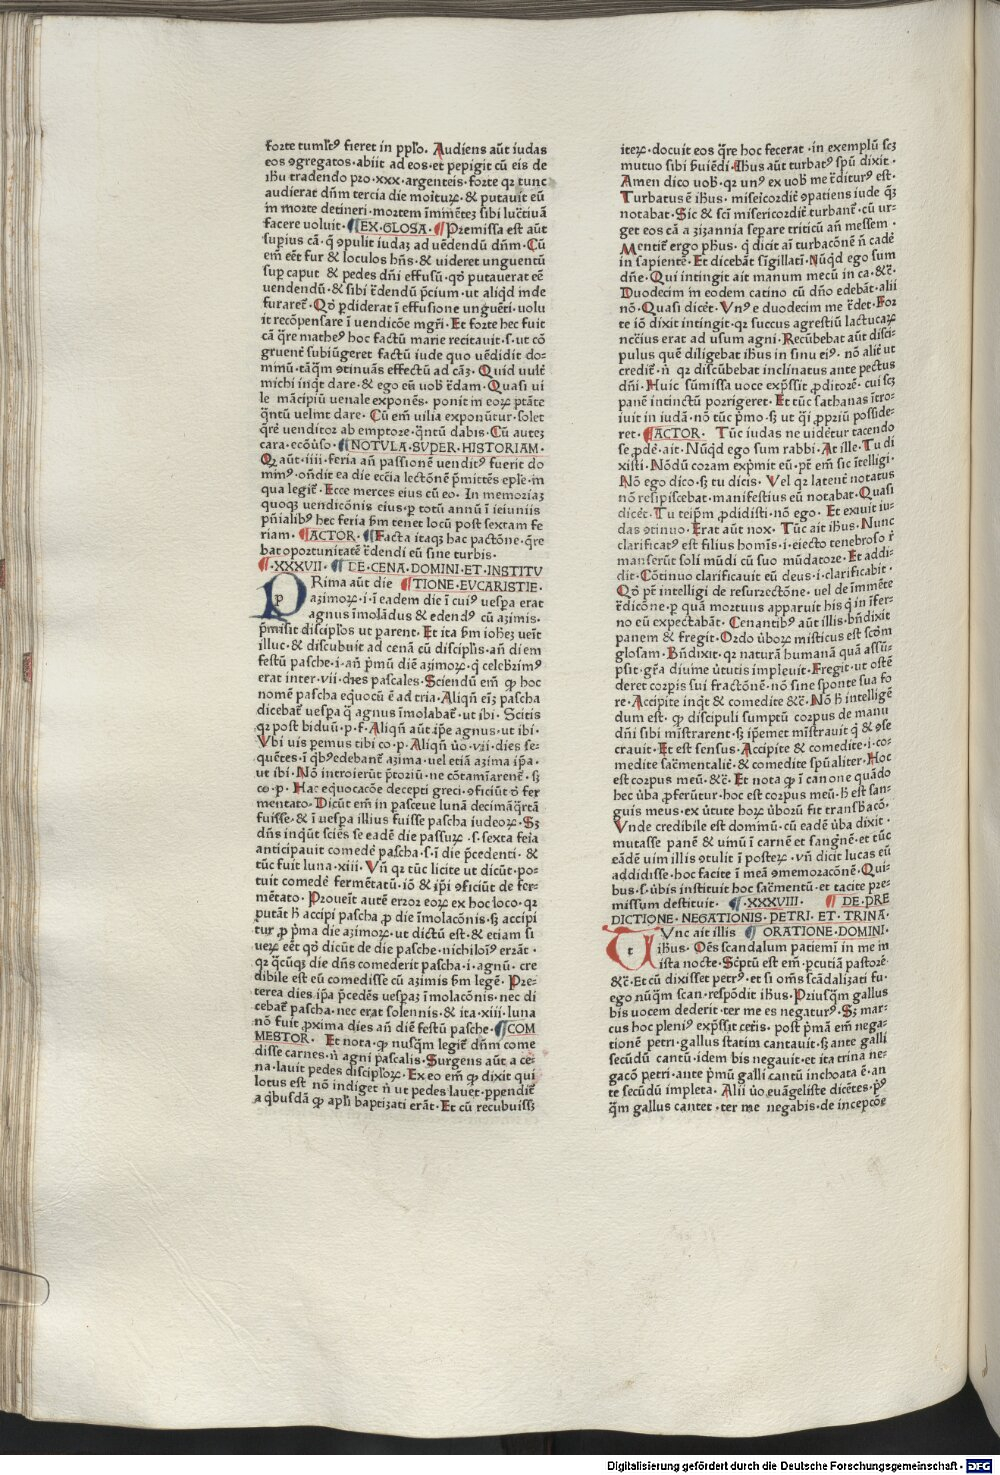 forte tumlt᷒ fieret in pplo. Audiens aūt iudas
eos ꝯgregatos·abiit ad eos·et pepigit cū eis de
ihū tradendo pro·xxx·argenteis·forte qꝛ tunc
audierat dn̄m tercia die moituꝝ·& putauit eū
in morte detineri·mortem īmīētez sibi luc̄tiuā
facere uoluit·¶EX·GLOSA·¶Premissa est aūt
supius cā·q̄ ꝯpulit iudaz ad uēdendū dn̄m·Cū
em̄ eēt fur & loculos hn̄s·& uideret unguentū
sup caput & pedes dn̄i effusū·qđ putauerat eē
uendendū·& sibi t̄dendū p̄cium·ut aliqd inde
furaret̄·Qđ ꝑdiderat ī effusione unguēti·uolu
it recōpensare ī uendicōe mgr̄i·Et forte hec fuit
cā q̄re mathe᷒ hoc factū marie recitauit·s·ut cō
gruent̄ subiūgeret factū iude quo uēdidit do-
minū·tāq̄m ꝯtinuās effectū ad cāz·Quid uult̄
michi inq̄t dare·& ego eū uob̄ t̄dam·Quasi ui
le mācipiū uenale exponēs·ponit in eoꝝ ptāte
q̄ntū uelint dare·Cū em̄ uilia exponūtur·solet
q̄re uenditor ab emptore·q̄ntū dabis·Cū autez
cara·ecōuso·¶NOTVLA·SVPER·HISTORIAM·
Qꝛ aūt·iiii·feria an̄ passionē uendit᷒ fuerit do
min᷒·on̄dit ea die eccīa lectōnē p̄mittēs eplē·in
qua legit̄·Ecce merces eius cū eo·In memoriaz
quoqz uendicōnis eius·ꝑ totū annū ī ieiuniis
pn̄ialib᷒ hec feria p̄m tenet locū post sextam fe
riam·¶ACTOR·¶Facta itaqz hac pactōne·q̄re
bat oportunitatē t̄dendi eū sine turbis·
¶·XXXVII·¶DE·CENA·DOMINI·ET·INSTITV
PRima aūt die ¶TIONE·EVCARISTIE·
azimoꝝ·i·ī eadem die ī cui᷒ uesꝑa erat
agnus īmolādus & edend᷒ cū azimis·
p̄misit disciplos ut parent̄·Et ita p̄m iohez uen̄t
illuc·& discubuit ad cenā cū disciplis·an̄ diem
festū pasche·i·an̄ p̄mū diē azimoꝝ·q̄ celebrim᷒
erat inter·vii·dies pascales·Sciendū em̄ ꝙ hoc
nomē pascha equocū ē ad tria·Aliqn̄ eīz pascha
dicebat̄ uesꝑa q̄ agnus īmolabat̄·ut ibi·Scitis
qꝛ post biduū·p·f·Aliqn̄ aūt ip̄e agnus·ut ibi·
Vbi uis pemus tibi co·p·Aliqn̄ ūo·vii·dies se-
quētes·ī qb᷒edebant̄ azima·uel etiā azima ip̄a·
ut ibi·Nō introierūt p̄toriū·ne cōtamīarent̄·sꝫ
co·p·Hac equocacōe decepti greci·ꝯficiūt đ fer
mentato·Dicūt em̄ in ꝑasceue lunā decimāq̄rtā
fuisse·& ī uesꝑa illius fuisse pascha iudeoꝝ·Sꝫ
dn̄s inqūt sciēs se eadē die passuꝝ·s·sexta feia
anticipauit comedē pascha·s·ī die p̄cedenti·&
tūc fuit luna·xiii·Vn̄ qꝛ tūc licite ut dicūt·po-
tuit comedē fermētatū·iō & ip̄i ꝯficiūt de fer-
mētato·Prouēit autē error eoꝝ ex hoc loco·qꝛ
putāt h̄ accipi pascha ꝓ die īmolacōnis·sꝫ accipi
tur ꝓ p̄ma die azimoꝝ·ut dictū est·& etiam si
ueꝝ eēt qđ dicūt de die pasche·nichiloī᷒ errāt·
qꝛ q̄cūqz die dn̄s comederit pascha·i·agnū·cre
dibile est eū comedisse cū azimis p̄m legē·Pre-
terea dies ip̄a p̄cedēs uesꝑaz īmolacōnis·nec di
cebat̄ pascha·nec erat solennis·& ita·xiii·luna
nō fuit ꝓxima dies an̄ diē festū pasche·¶COM
MESTOR·Et nota·ꝙ nusq̄m legit̄ dn̄m come
disse carnes·n̄ agni pascalis·Surgens aūt a ce-
na·lauit pedes disciploꝝ·Ex eo em̄ ꝙ dixit qui
lotus est nō indiget n̄ ut pedes lauet·ꝑpendit̄
a qbusdā ꝙ apli baptizati erāt·Et cū recubuissꝫ
iteꝝ·docuit eos q̄re hoc fecerat·in exemplū scꝫ
mutuo sibi ꝫuiēdi·Ihus aūt turbat᷒ spū dixit·
Amen dico uob̄·qꝛ un᷒ ex uob̄ me t̄ditur᷒ est·
Turbatus ē ihus·misericordit̄ ꝯpatiens iude q̄z
notabat·Sic & scī misericordit̄ turbant̄·cū ur-
get eos cā a zizannia separe triticū an̄ messem·
Mentit̄ ergo phus·q̄ dicit aīt turbacōnē n̄ cadē
in sapientē·Et dicebāt sīgillatī·Nūqd ego sum
dn̄e·Qui intingit ait manum mecū in ca·&c̄·
Duodecim in eodem catino cū dn̄o edebāt·alii
nō·Quasi dicēt·Vn᷒ e duodecim me t̄det·For
te iō dixit intingit·qꝛ succus agrestiū lactucaꝝ
nec̄ius erat ad usum agni·Recūbebat aūt disci-
pulus quē diligebat ihus in sinu ei᷒·nō alit̄ ut
credit̄·n̄ qꝛ discūbebat inclinatus ante pectus
dn̄i·Huic sūmissa uoce exp̄ssit ꝓditorē·cui scꝫ
panē intinctū porrigeret·Et tūc sathanas ītro-
iuit in iudā·nō tūc p̄mo·sꝫ ut qī ꝓpriū posside-
ret·¶ACTOR·Tūc iudas ne uidetur tacendo
se ꝓdē·ait·Nūqd ego sum rabbi·At ille·Tu di
xisti·Nōdū coram exp̄mit eū·pt̄ em̄ sic ītelligi·
Nō ego dico·sꝫ tu dicis·Vel qꝛ latent̄ notatus
nō resipiscebat·manifestius eū notabat·Quasi
dicēt·Tu teipm̄ ꝓdidisti·nō ego·Et exiuit iu-
das ꝯtinuo·Erat aūt nox·Tūc ait ihus·Nunc
clarificat᷒ est filius homīs·i·eiecto tenebroso r̄
manserūt soli mūdi cū suo mūdatore·Et addi-
dit·Cōtinuo clarificauit eū deus·i·clarificabit·
Qđ pt̄ intelligi de resurrectōne·uel de īmēte
t̄dicōne·ꝑ quā mortuus apparuit his q̄ in īfer-
no eū expectabāt·Cenantib᷒ aūt illis·bn̄dixit
panem & fregit·Ordo ūboꝝ misticus est scd̄m
glosam·Bn̄dixit·qꝛ naturā humanā quā assū-
psit·gr̄a diuine ūtutis impleuit·Fregit·ut ostē
deret corpis sui fractōnē·nō sine sponte sua fo
re·Accipite inq̄t & comedite &c̄·Nō h̄ intelligē
dum est·ꝙ discipuli sumptū corpus de manu
dn̄i sibi mīstrarent·sꝫ ip̄emet mīstrauit q̄ & ꝯse
crauit·Et est sensus·Accipite & comedite·i·co-
medite sac̄mentalit̄·& comedite spūaliter·Hoc
est corpus meū·&c̄·Et nota ꝙ ī canone quādo
hec ūba ꝓferūtur·hoc est corpus meū·h̄ est san-
guis meus·ex ūtute hoꝝ ūborū fit transb̄acō·
Vnde credibile est dominū·cū eadē ūba dixit·
mutasse panē & uinū ī carnē et sangnē·et tūc
eādē uim illis ꝯtulit ī posteꝝ·vn̄ dicit lucas eū
addidisse·hoc facite ī meā ꝯmemoracōnē·Qui-
bus·s·ūbis instituit hoc sac̄mentū·et tacite pre-
missum destituit·¶·XXXVIII·¶DE·PRE
DICTIONE·NEGATIONIS·PETRI·ET·TRINA·
TVnc ait illis ¶ORATIONE·DOMINI·
ihus·Oēs scandalum patiemī in me in
ista nocte·Sc̄ptū est em̄·ꝑcutiā pastorē
&c̄·Et cū dixisset petr᷒·et si om̄s scādalizati fu·
ego nūq̄m scan·respōdit ihus·Priusq̄m gallus
bis uocem dederit·ter me es negatur᷒·Sꝫ mar-
cus hoc pleni᷒ exp̄ssit cet̄is·post p̄mā em̄ nega-
tionē petri·gallus statim cantauit·sꝫ ante galli
secūdū cantū·idem bis negauit·et ita trina ne-
gacō petri·ante p̄mū galli cantū inchoata ē·an
te secūdū impleta·Alii ūo euāgeliste dicētes·p᷒
q̄m gallus cantet·ter me negabis·de incepcōe
Digitalisierung gefördert durch die Deutsche Forschungsgemeinschaft - DFG